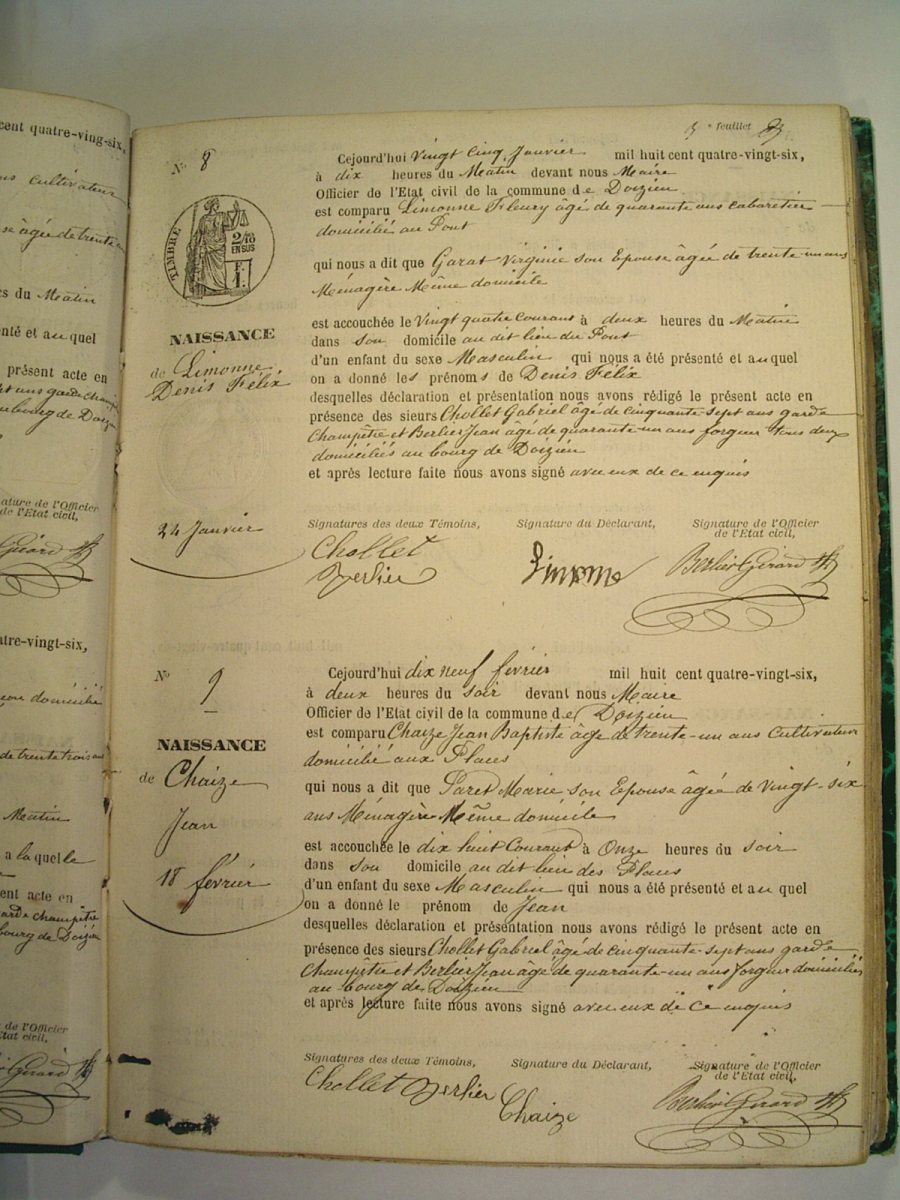 cent quatre-ving-six,
cultivateur
se âgée de trente
es du Matin
enté et au quel
présent acte en
ans garde champ
bourg de Doizieu
ature de l'Officier
de l'Etat civil,
Girard
atre-vingt-six,
domicilié
de trente trois ans
Matin
a la quelle
ent acte en
garde champêtre
bourg de Doizieu
e de l'Officier
tat civil,
Girard
5 e feuillet
N° 8
TIMBRE
2/10
EN SUS
F.
1.
NAISSANCE
de Limonne
Denis Félix
24 Janvier
Cejourd'hui Vingt Cinq Janvier mil huit cent quatre-vingt-six,
à dix heures du Matin devant nous Maire
Officier de l'Etat civil de la commune de Doizieu
est comparu Limonne Fleury âgé de quarante ans cabaretier
domicilié au Pont
qui nous a dit que Garat Virginie son Epouse âgée de trente un ans
Ménagère Même domicile
est accouchée le Vingt quatre courant à deux heures du Matin
dans son domicile au dit lieu du Pont
d'un enfant du sexe Masculin qui nous a été présenté et au quel
on a donné les prénoms de Denis Félix
desquelles déclaration et présentation nous avons rédigé le présent acte en
présence des sieurs Chollet Gabriel âgé de cinquante-sept ans garde
Champêtre et Berlier Jean âgé de quarante-un ans forgeur tous deux
domiciliés au bourg de Doizieu
et après lecture faite nous avons signé avec eux de ce enquis
Signatures des deux Témoins, Signature du Déclarant, Signature de l'Officier
de l'Etat civil,
Chollet
Berlier
Limone
Berlier Girard
N° 9
NAISSANCE
de Chaize
Jean
18 février
Cejourd'hui dix neuf février mil huit cent quatre-vingt-six,
à deux heures du soir devant nous Maire
Officier de l'Etat civil de la commune de Doizieu
est comparu Chaize Jean Baptiste âgé de trente-un ans Cultivateur
domicilié aux Places
qui nous a dit que Paret Marie son Epouse âgée de Vingt-six
ans Ménagère Même domicile
est accouchée le dix huit Courant à Onze heures du soir
dans son domicile au dit lieu des Places
d'un enfant du sexe Masculin qui nous a été présenté et au quel
on a donné le prénom de Jean
desquelles déclaration et présentation nous avons rédigé le présent acte en
présence des sieurs Chollet Gabriel âgé de cinquante-sept ans garde
Champêtre et Berlier Jean âgé de quarante-un ans forgeur domiciliés
au bourg de Doizieu
et après lecture faite nous avons signé avec eux de ce enquis
Signatures des deux Témoins, Signature du Déclarant, Signature de l'Officier
de l'Etat civil,
Chollet Berlier
Chaize
Berlier Girard